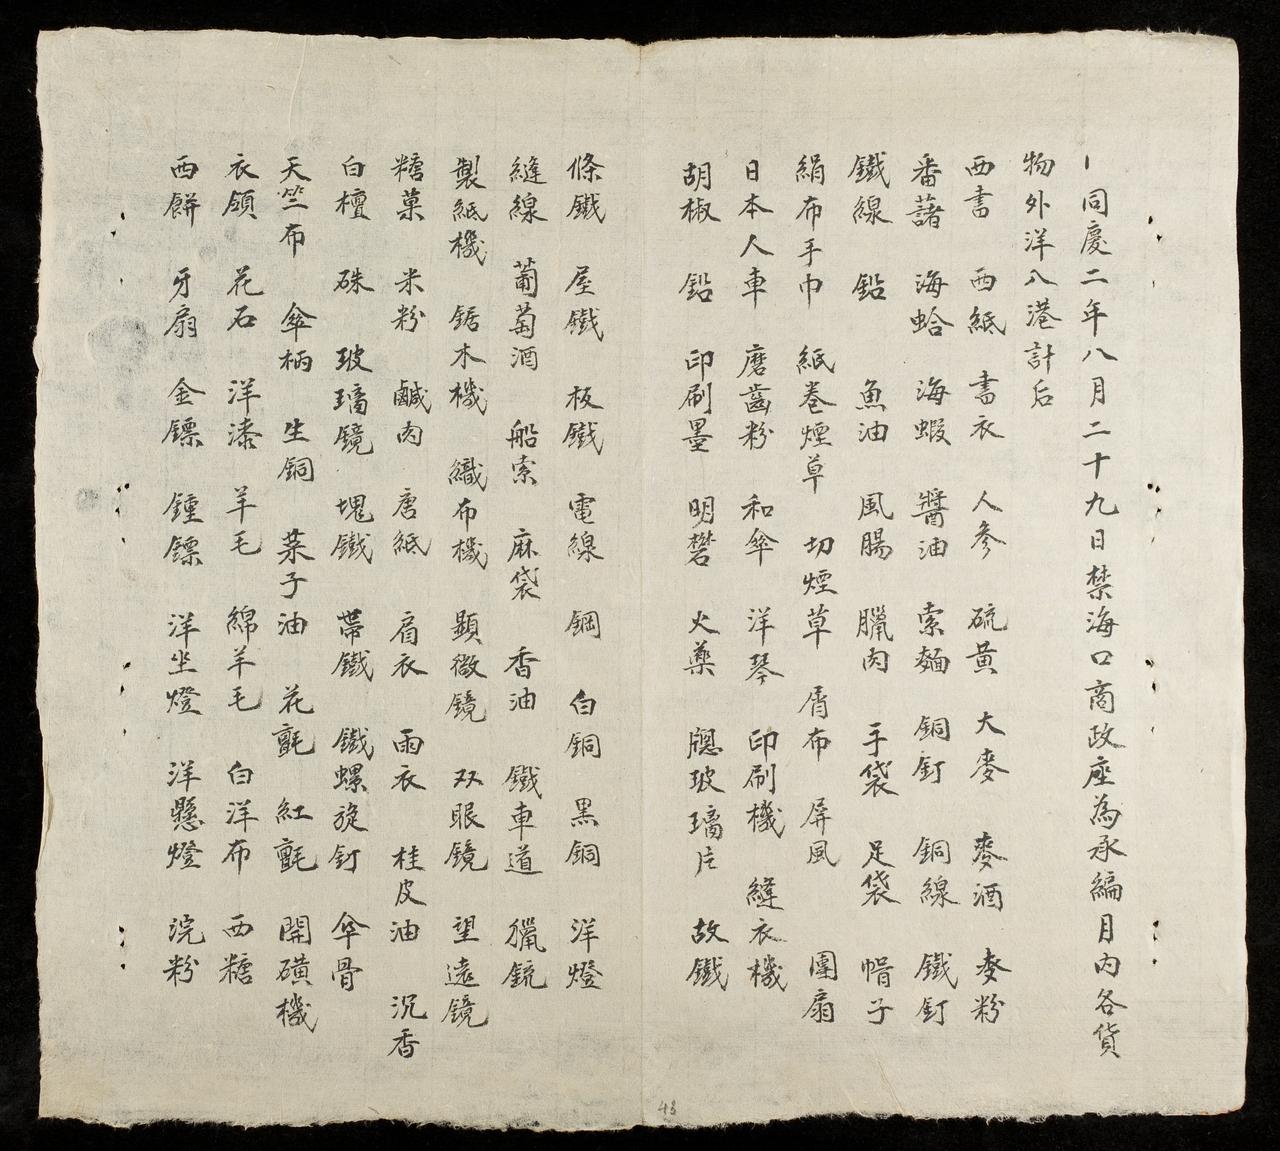 一同慶二年八月二十九日禁海口商政座為承編月内各貨
物外洋入港計后
西書 西紙 書衣 人參 硫黄 大麥 麥酒 麥粉
番藷 海蛤 海蝦 醬油 索麵 銅釘 銅線 鐵釘
鐵線 鉛 魚油 風腸 臘肉 手袋 足袋 帽子
絹布手巾 紙卷煙草 切煙草 屑布 屏風 團扇
日本人車 磨齒粉 和傘 洋琴 印刷機 縫衣機
胡椒 鉛 印刷墨 明礬 火藥 牕玻璃片 故鐵
條鐵 屋鐵 板鐵 電線 鋼 白銅 黒銅 洋燈
縫線 葡萄酒 船索 麻袋 香油 鐵車道 獵銃
製紙機 鋸木機 織布機 顯微鏡 双眼鏡 望遠鏡
糖菓 米粉 鹹肉 唐紙 肩衣 雨衣 桂皮油 沉香
白檀 硃 玻璃鏡 塊鐵 帶鐵 鐵螺旋釘 傘骨
天竺布 傘柄 生銅 菜子油 花氈 紅氈 開礦機
衣領 花石 洋漆 羊毛 綿羊毛 白洋布 西糖
西餅 牙扇 金鏢 鍾鏢 洋坐燈 洋懸燈 浣粉
48